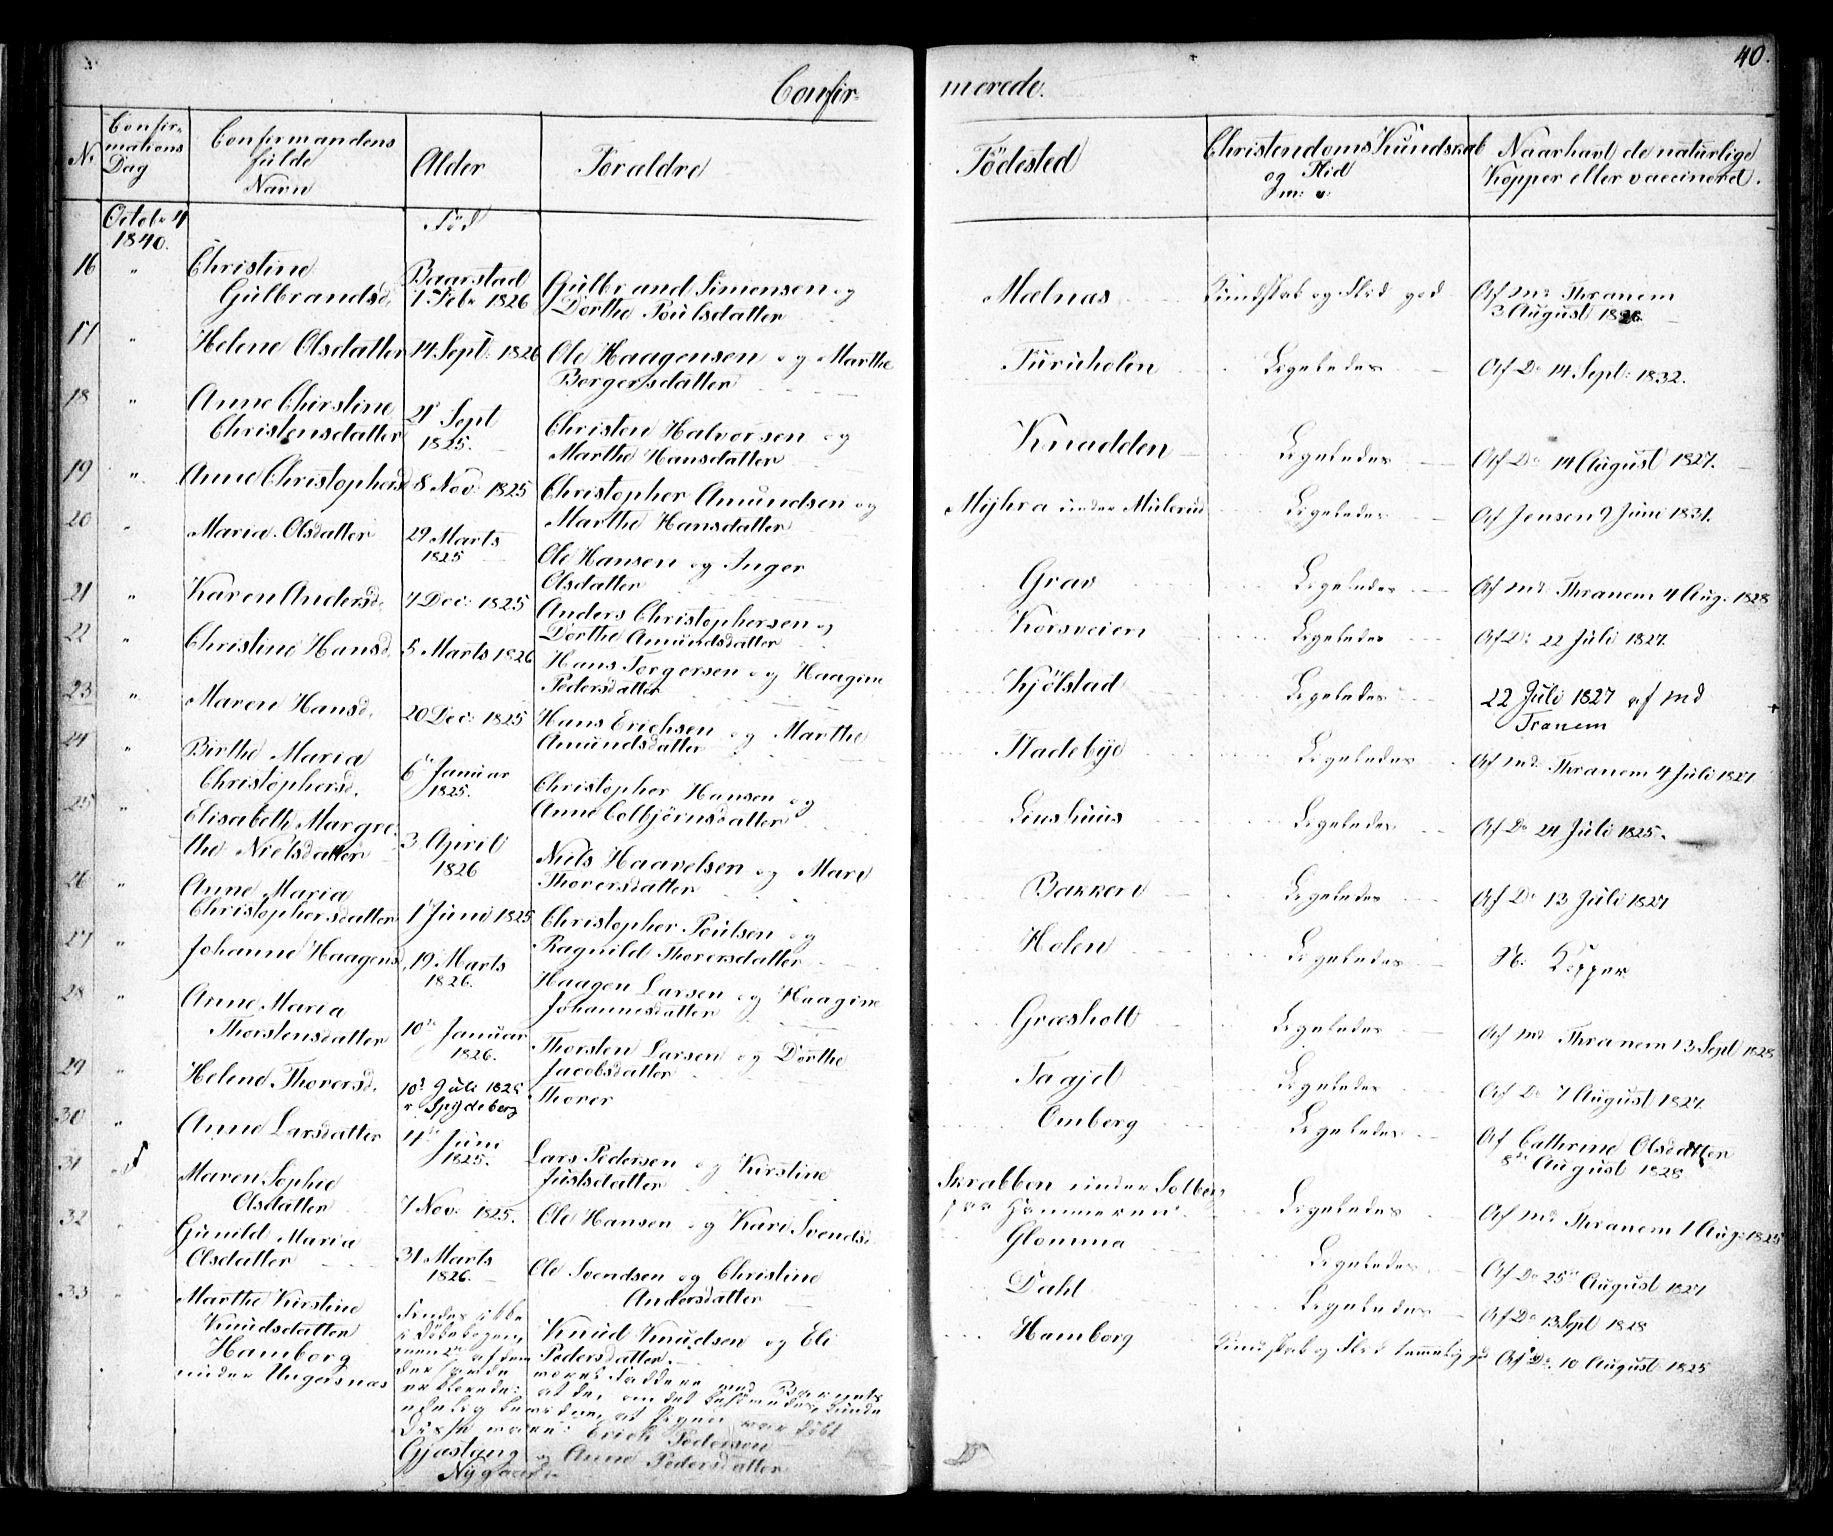 40.
Confir-
merede.
No
Confir-
mations
Dag
Confirmandens
fulde
Navn
Alder
Forældre
Födested
Christendoms Kundskab
og Flid
m: v:
Naar havt de naturlige
Kopper eller vaccinered.
Octobr 4
1840.
Föd
16 " Christine
Gulbrandsd.
Baarstad
1 Febr 1826
Gulbrand Simensen og
Dorthe Poulsdatter
Mælnæs
Kundskab og Flid god
Af Md Thranem
3 August 1826.
17 " Helene Olsdatter
14 Sept: 1826
Ole Haagensen og Marthe
Borgersdatter
Furuholen
Ligeledes
Af Do 14 Sept: 1832.
18 " Anne Chirstine
Christensdatter
21 Sept
1825.
Christen Halvorsen og
Marthe Hansdatter
Knadden
Ligeledes
Af Do 14 August 1827.
19 " Anne Christophersd
8 Nov: 1825
Christopher Amundsen og
Marthe Hansdatter
Myhra under Mulerud
Ligeledes
Af Jensen 9 Juni 1831.
20 " Maria Olsdatter
29 Marts
1825
Ole Hansen og Inger
Olsdatter
Grav
Ligeledes
Af Md Thranem 4 Aug. 1828
21 " Karen Andersd.
7 Dec: 1825
Anders Christophersen og
Dorthe Amundsdatter
Korsveien
Ligeledes
Af Do 22 Juli 1827.
22 " Christine Hansd.
5 Marts 1826
Hans Torgersen og Haagine
Pedersdatter
Kjölstad
Ligeledes
22 Juli 1827 af Md
Tranem
23 " Maren Hansd.
20 Dec: 1825
Hans Erichsen og Marthe
Amundsdatter
Hadebye
Ligeledes
Af Md: Thranem 4 Juli 1827
24 " Birthe Maria
Christophersd.
6 Januar
1825.
Christopher Hansen og
Anne Colbjörnsdatter
Linshuus
Ligeledes
Af Do 24 Juli 1825.
25 " Elisabeth Margre-
the Nielsdatter
3 April
1826
Niels Haavelsen og Mari
Thorersdatter
Bakken
Ligeledes
Af Do 13 Juli 1827
26 " Anne Maria
Christophersdatter
1 Juni 1825
Christopher Poulsen og
Ragnild Thorersdatter
Holen
Ligeledes
N: Kopper
27 " Johanne Haagensd.
19 Marts
1826.
Haagen Larsen og Haagine
Johannesdatter
Græsholt
Ligeledes
Af Md Thranem 13 Sept 1828
28 " Anne Maria
Thorstensdatter
10de Januar
1826.
Thorsten Larsen og Dorthe
Jacobsdatter
Taajet
Ligeledes
Af Do 7 August 1827.
29 " Helene Thorersd.
10d Juli 1825
v. Spydeberg
Thorer
Omberg
Ligeledes
Af Cathrine Olsdatter
8de August 1828
30 " Anne Larsdatter
4de Juni
1825.
Lars Pedersen og Kirstine
Justsdatter
Skrabben under Solberg
paa Hammeren.
Ligeledes
Af Md Thranem 1 Aug: 1825
31 Maren Sophie
Olsdatter
7 Nov: 1825.
Ole Hansen og Kari Svendsd.
Glomma
Ligeledes
Af Do 25de August 1827
32 Gunild Maria
Olsdatter
31 Marts
1826.
Ole Svendsen og Christine
Andersdatter
Dahl
Ligeledes
Af Do 13 Sept 1828
33 " Marthe Kirstine
Knudsdatter
Hamborg
under Ungersnæs
Findes ikke
i Döbebogen,
men af dem
der havde
været Faddere ved Barnets
erklærede:
at Pigen var döbt
Disse vare: Erich Pedersen
Gjæstang og Anne Pedersdatter
Nygaard
Knud Knudsen og Eli
Pedersdatter.
Hamborg
Kundskab og Flid temmelig god
Af Do. 10 August 1825